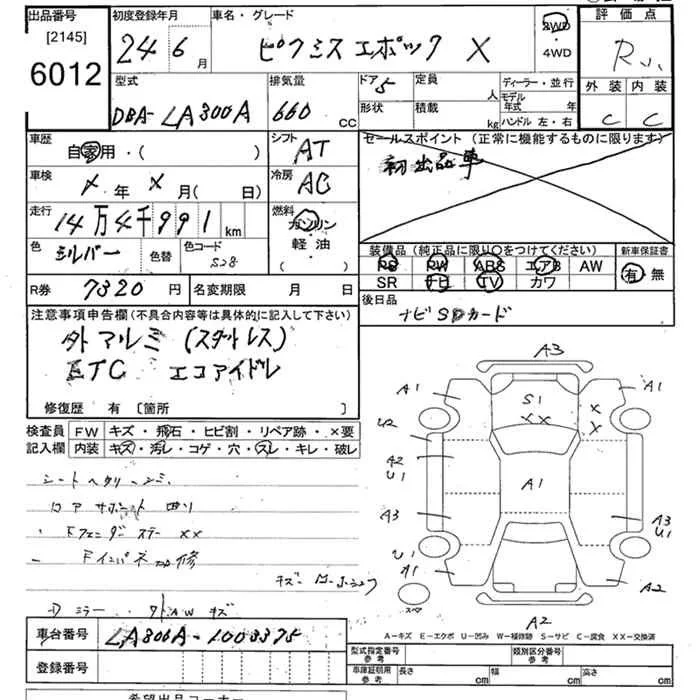 出品番号 初度登録年月 車名・グレード 評価点
[2145]
6012 24 6月 ピクミスエポック X 2WD ・4WD R
型式 排気量 ドア 5 定員 人 ディーラー・並行 外装 内装
DBA-LA300A 660 CC 形状 積載 kg モデル年式 年 ハンドル 左・右 C C
車歴 自家用・( ) シフト AT セールスポイント(正常に機能するものに限ります)
初出品車
車検 X年 X月( 日) 冷房 AC
走行 14万4千991km 燃料 ガソリン・軽油・( )
色 シルバー 色替 色コード S28
装備品(純正品に限り〇をつけてください) 新車保証書
PS PW ABS エアB AW 有・無
SR ナビ TV カワ
R券 7320円 名変期限 月 日 後日品
ナビSDカード
注意事項申告欄(不具合内容等は具体的に記入して下さい)
外マルミ (スタットレス)
ETC エコアイドル
修復歴 有 [箇所 ]
検査員記入欄 FW キズ・飛石・ヒビ割・リペア跡・×要
内装 キズ・汚レ・コゲ・穴・スレ・キレ・破レ
シートヘタリ
コアサポート曲り
Fフェンダーステー XX
修
ミラー キズ
A3
A1 S1 XX A1
U2 XX
A2 U1 A1
A3 A3 U1
U1
A1 A2
スペア A2
A-キズ E-エクボ U-凹み W-補修跡 S-サビ C-腐食 XX-交換済
車台番号 LA300A-1003375
登録番号
型式指定番号 参考 類別区分番号 参考
車庫証明用 参考 長さ cm 幅 cm 高さ cm
希望出品コーナー